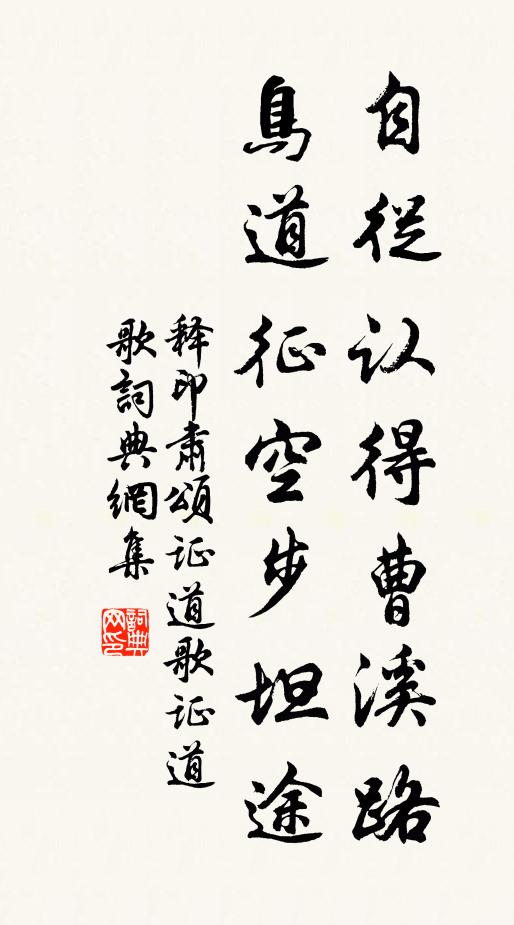 自從认得曹溪路
鳥道征空步坦途
释印肅頌证道歌证道
歌詞典網集
詞典
网印